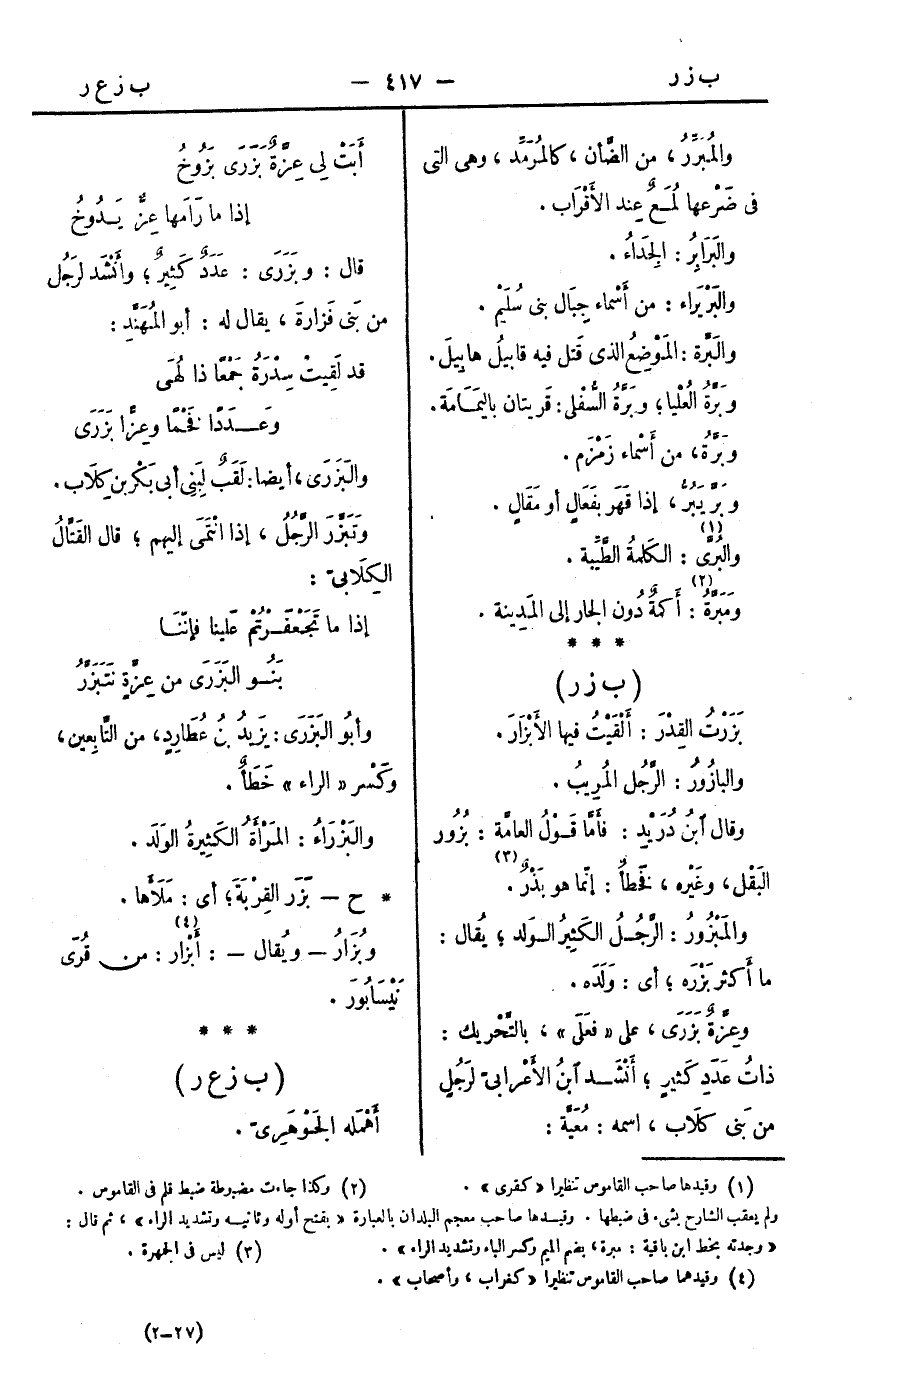 ب ز ر
— ٤١٧ —
ب ز ع ر
والمُبَرِّرُ ، من الضَّأن ، كالمُرَمِّد ، وهى التى
فى ضَرْعها لُمَعٌ عند الأَقْراب .
والبَرَابِرُ : الجِدَاءُ .
والبَرْيَراء : من أَسْماء جِبَال بنى سُلَيْم .
والبَرَّة : المَوْضِعُ الذى قَتل فيه قابيلُ هابِيلَ .
وبَرَّةُ العُلْيا ؛ وبَرَّةُ السُّفْلى : قريتان باليَمَامَة .
وبَرَّةُ ، من أَسْماء زَمْزَم .
وبَرَّ يَبَرُّ ، إذا قَهَر بفَعَالٍ أو مَقَالٍ .
والبُرَّى (١) : الكلمةُ الطَّيِّبة .
ومَبَرَّةُ (٢) : أَكَمَةٌ دُون الجار إلى المَدِينة .
* * *
( ب ز ر )
بَزَرْتُ القِدْرَ : أَلْقَيْتُ فيها الأَبْزَارَ .
والبازُورُ : الرَّجُل المُرِيبُ .
وقال ٱبنُ دُرَيْدٍ : فأَمَّا قَوْلُ العامَّة : بُزُور
البَقْل ، وغَيْره ، فخَطأٌ : إنّما هو بَذْرٌ (٣) .
والمَبْزُورُ : الرَّجُلُ الكَثِيرُ الوَلد ؛ يُقال :
ما أَكثر بَزْرَه ؛ أى : وَلَدَه .
وعِزَّةٌ بَزَرَى ، على « فَعَلَى » ، بالتَّحْريك :
ذاتُ عَدَدٍ كَثيرٍ ؛ أَنْشَد ٱبنُ الأَعْرابىّ لرَجُلٍ
من بَنى كلاب ، اسمه : مُعَيَّة :
أَبَتْ لِى عِزَّةٌ بَزَرَى بَزُوخُ
إذا ما رَامَها عِزٌّ يَدُوخُ
قال : وبَزَرَى : عَدَدٌ كَثيرٌ ؛ وأَنْشَد لرَجُل
من بَنى فَزارةَ ، يقال له : أبو المُهَنَّدِ :
قد لَقِيتْ سِدْرَةُ جَمْعًا ذا لُهَى
وعَدَدًا فَخْمًا وعِزًّا بَزَرَى
والبَزَرَى ، أيضا : لَقَبٌ لِبَنِى أبى بَكْر بن كِلَاب .
وتَبَزَّرَ الرَّجُلُ ، إذا انْتَمَى إليهم ؛ قال القَتَّالُ
الكِلَابىّ :
إذا ما تَجَعْفَرْتُمْ عَلَينا فإنّنَا
بَنُو البَزَرَى من عِزَّةٍ نَتَبَزَّرُ
وأبُو البَزَرَى : يَزِيدُ بنُ عُطَارِدٍ ، من التَّابِعين ،
وكَسْر « الراء » خَطَأٌ .
والبَزْرَاءُ : المَرْأةُ الكَثِيرةُ الوَلَد .
* ح — بَزَّر القِرْبَةَ ؛ أى : مَلَأها .
وبُزَارُ — ويُقال — : أَبْزَار (٤) : من قُرَى
نَيْسَابُورَ .
* * *
( ب ز ع ر )
أَهْمَله الجَوْهَرِىّ .
(١) وقيدها صاحب القاموس تنظيرا « كقرى » . (٢) وكذا جاءت مضبوطة ضبط قلم فى القاموس .
ولم يعقب الشارح بشىء فى ضبطها . وقيدها صاحب معجم البلدان بالعبارة « بفتح أوله وثانيه وتشديد الراء » ، ثم قال :
« وجدته بخط ابن باقية : مبرة ، بضم الميم وكسر الباء وتشديد الراء » . (٣) ليس فى الجمهرة .
(٤) وقيدهما صاحب القاموس تنظيرا « كغراب ، وأصحاب » .
(٢٧-٢)